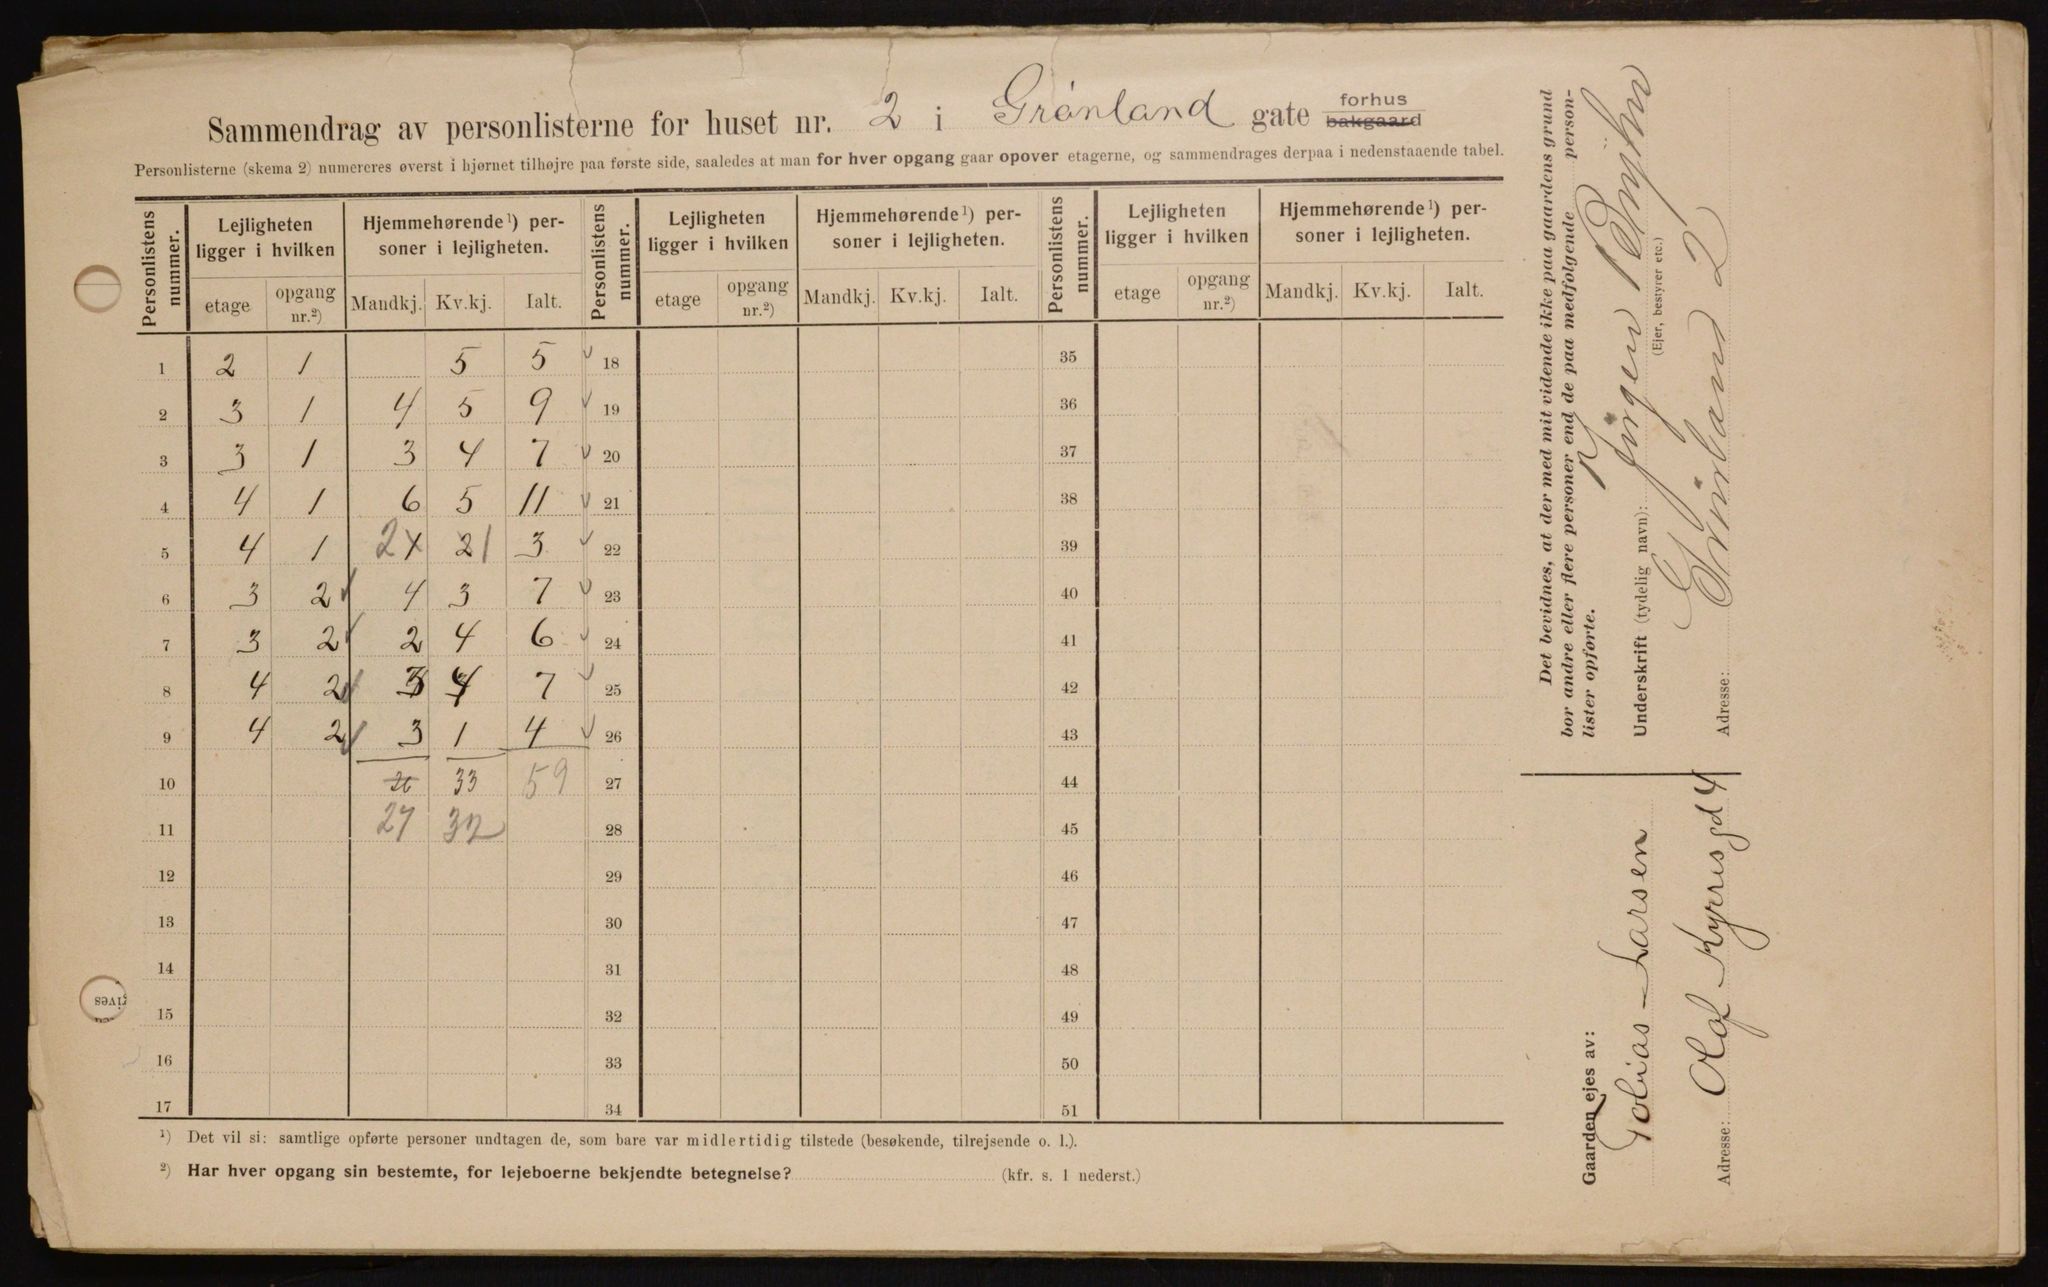 Sammendrag av personlisterne for huset nr. 2 i Grønland gate forhus bakgaard
Personlisterne (skema 2) numereres øverst i hjørnet tilhøjre paa første side, saaledes at man for hver opgang gaar opover etagerne, og sammendrages derpaa i nedenstaaende tabel.
Personlistens nummer. Lejligheten ligger i hvilken Hjemmehørende ¹) personer i lejligheten. Personlistens nummer. Lejligheten ligger i hvilken Hjemmehørende ¹) personer i lejligheten. Personlistens nummer. Lejligheten ligger i hvilken Hjemmehørende ¹) personer i lejligheten.
etage opgang nr.²) Mandkj. Kv.kj. Ialt. etage opgang nr.²) Mandkj. Kv.kj. Ialt. etage opgang nr.²) Mandkj. Kv.kj. Ialt.
1 2 1 5 5 18 35
2 3 1 4 5 9 19 36
3 3 1 3 4 7 20 37
4 4 1 6 5 11 21 38
5 4 1 2 1 2 1 3 22 39
6 3 2 4 3 7 23 40
7 3 2 2 4 6 24 41
8 4 2 3 4 7 25 42
9 4 2 3 1 4 26 43
10 26 33 59 27 44
11 27 32 28 45
12 29 46
13 30 47
14 31 48
15 32 49
16 33 50
17 34 51
¹) Det vil si: samtlige opførte personer undtagen de, som bare var midlertidig tilstede (besøkende, tilrejsende o. l.).
²) Har hver opgang sin bestemte, for lejeboerne bekjendte betegnelse? (kfr. s. 1 nederst.)
Det bevidnes, at der med mit vidende ikke paa gaardens grund
bor andre eller flere personer end de paa medfølgende personlister opførte.
Underskrift (tydelig navn): Jörgen
(Ejer, bestyrer etc.)
Adresse: Grönland 2
Gaarden ejes av:
Tobias Larsen
Adresse: Olaf Kyrres gd 4
gives